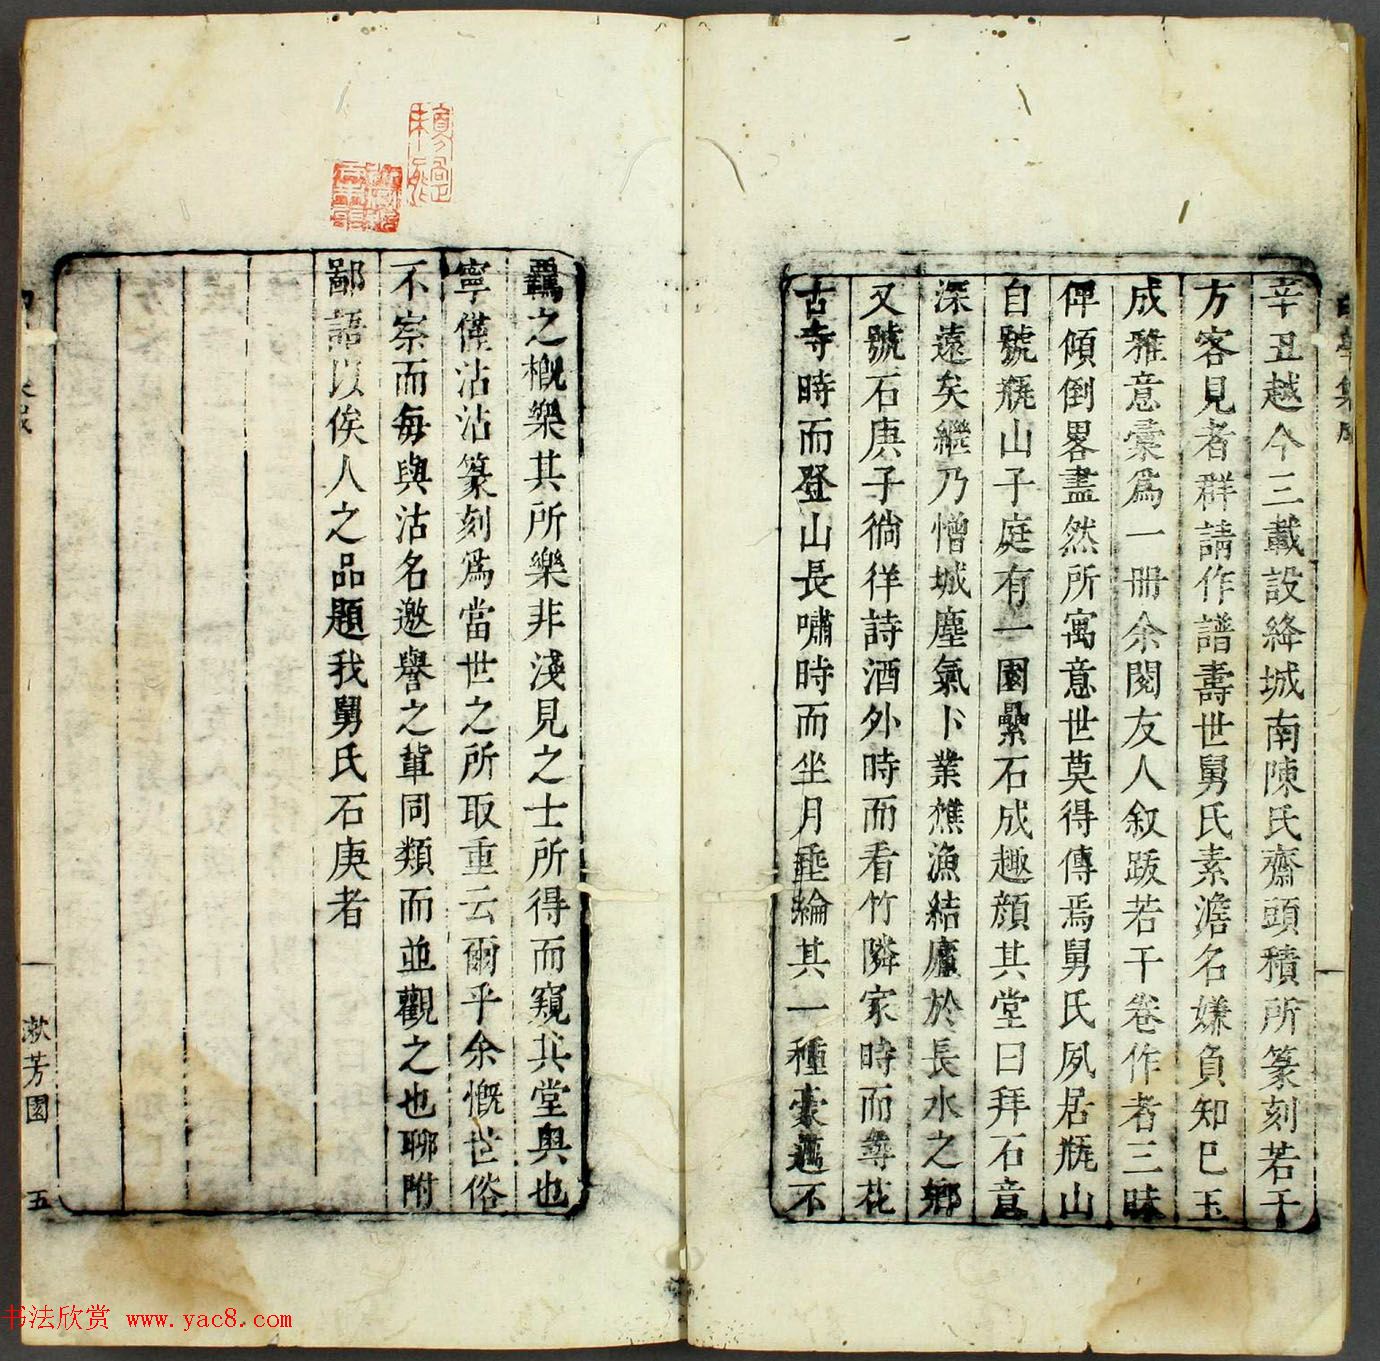 辛丑越今三載設絳城南陳氏齋頭積所篆刻若干
方客見者群請作譜壽世舅氏素澹名嫌負知巳玉
成雅意彙爲一冊余閱友人叙跋若干卷作者三昧
俾傾倒畧盡然所寓意世莫得傳焉舅氏夙居瓶山
自號瓶山子庭有一園壘石成趣顏其堂曰拜石意
深遠矣繼乃憎城塵氣卜業樵漁結廬於長水之鄉
又號石庚子徜徉詩酒外時而看竹隣家時而尋花
古寺時而登山長嘯時而坐月垂綸其一種豪邁不
羈之槪樂其所樂非淺見之士所得而窺其堂奧也
寧僅沾沾篆刻爲當世之所取重云爾乎余慨世俗
不察而每與沽名邀譽之輩同類而並觀之也聊附
鄙語以俟人之品題我舅氏石庚者
漱芳園
五
书法欣赏 www.yac8.com